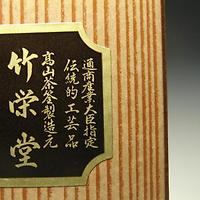 通商産業大臣指定
伝統的工芸品
高山茶筌製造元
竹栄堂